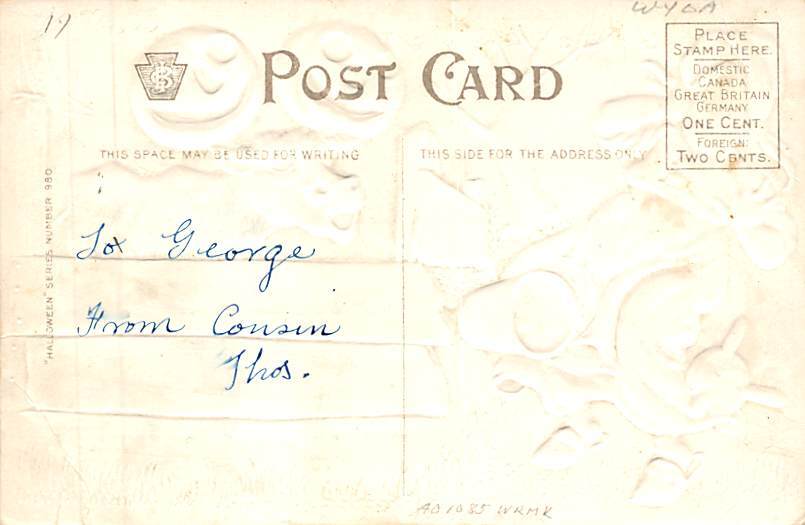 17
WYGA
POST CARD
PLACE
STAMP HERE.
DOMESTIC
CANADA
GREAT BRITAIN
GERMANY
ONE CENT.
FOREIGN:
TWO CENTS.
THIS SPACE MAY BE USED FOR WRITING
THIS SIDE FOR THE ADDRESS ONLY
"HALLOWEEN" SERIES NUMBER 980
To George
From Cousin
Thos.
AO 1085 WRMR